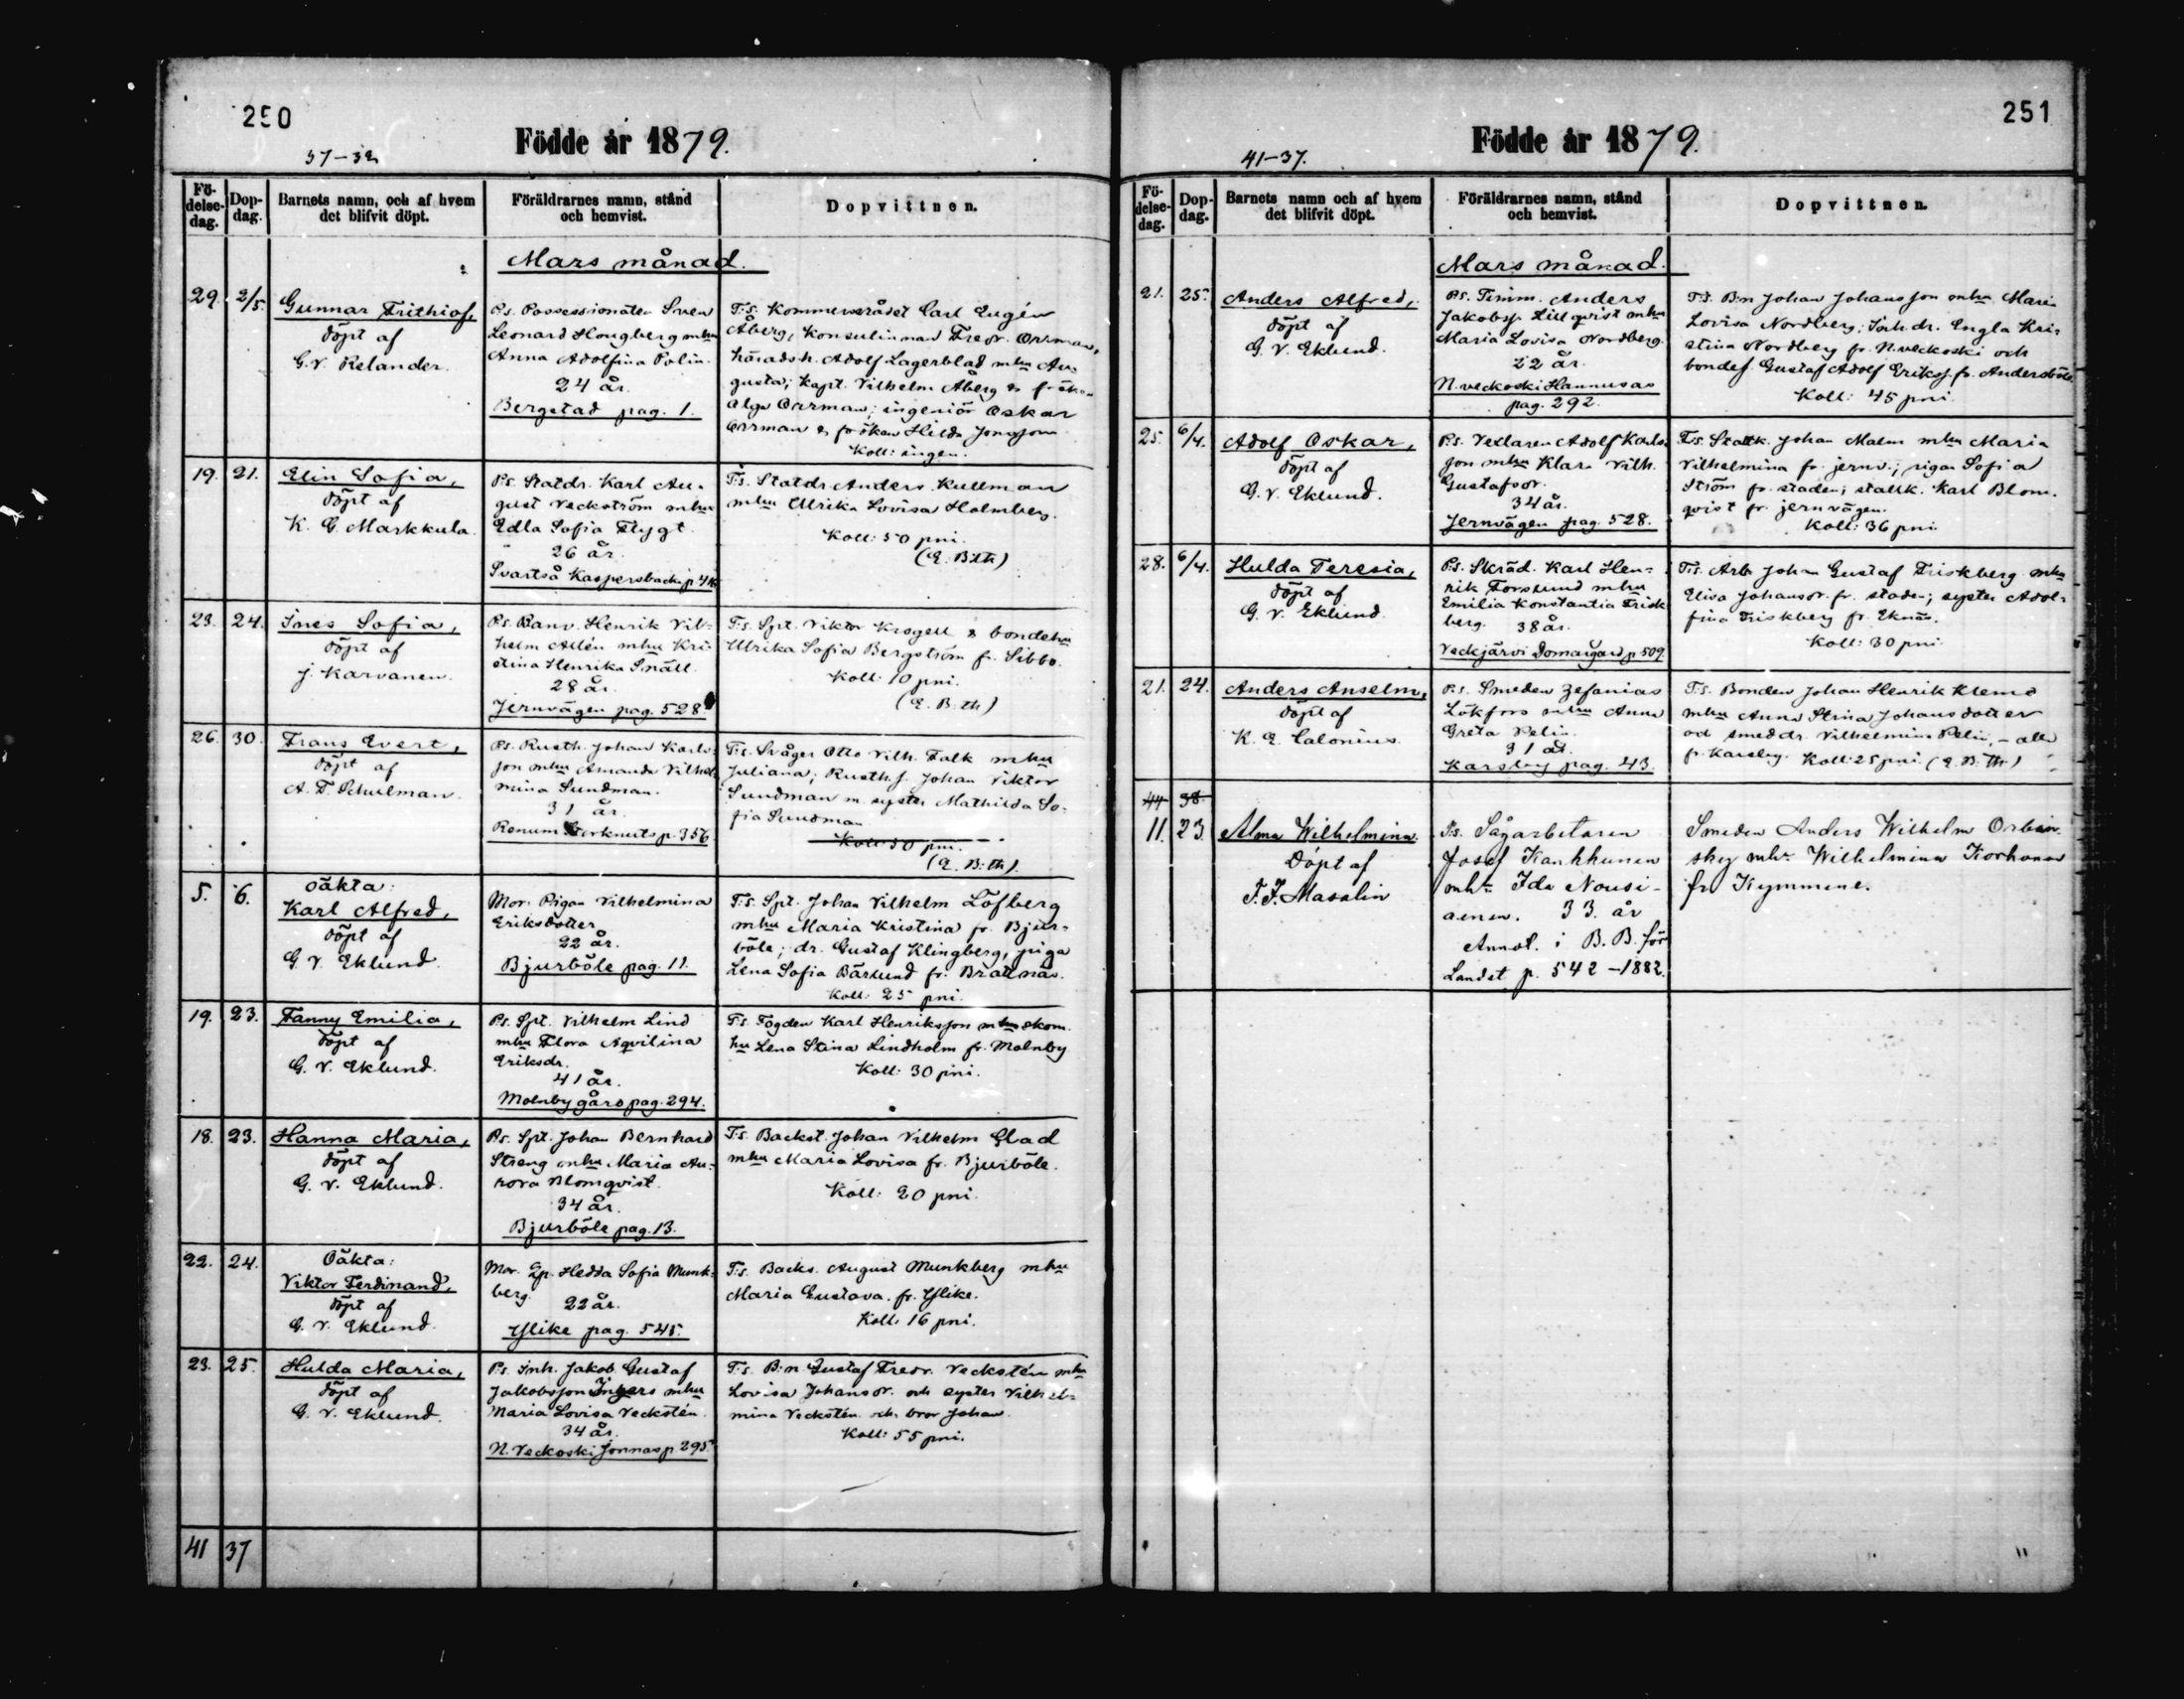 250
Födde år 1879.
37-32
Fö-
delse-
dag.
Dop-
dag.
Barnets namn, och af hvem
det blifvit döpt.
Föräldrarnes namn, stånd
och hemvist.
Dopvittnen.
Mars månad.
29. 2/5.
Gunnar Frithiof,
döpt af
G. V. Relander.
Ps. Possessionaten Sven
Leonard Hougberg mhu
Anna Adolfina Polin.
24 år.
Bergstad pag. 1.
T:s. Kommerserådet Carl Eugén
Åberg, Konsulinnan Fredr. Orrman,
häradsh. Adolf Lagerblad mhu Au-
gusta; Kapt. Vilhelm Åberg &
Alga Orrman; ingeniör Oskar
Orrman & fröken Hilda Jonsson
Koll: ingen.
19. 21.
Elin Sofia,
döpt af
K. G. Markkula
Ps. Statdr. Karl Au-
gust Veckström mhu
Edla Sofia Flygt.
26 år.
Svartså Kaspersbacka p.
T:s. Statdr. Anders Kullman
mhu Ulrika Lovisa Holmberg.
Koll: 50 pni.
(E. B:th)
23. 24.
Ines Sofia,
döpt af
J. Karvanen.
Ps. Banv. Henrik Vil-
helm Allén mhu Kri-
stina Henrika Snäll.
28 år.
Jernvägen pag. 528.
T:s. Spt. Viktor Krogell & bondehu
Ulrika Sofia Bergström fr. Sibbo.
Koll: 10 pni.
(E. B:th)
26. 30.
Frans Evert,
döpt af
A. F. Schulman.
Ps. Rusth. Johan Karls-
son mhu Amanda Vilhel-
mina Sundman.
31 år.
Renum Storknuts p. 356.
T:s. Svåger Otto Vilh. Falk mhu
Juliana; Rusth.s. Johan Viktor
Sundman m. syster Mathilda So-
fia Sundman
Koll: 30 pni.
(E. B:th).
5. 6.
Oäkta:
Karl Alfred,
döpt af
G. V. Eklund.
Mor. Pigan Vilhelmina
Eriksdotter
22 år.
Bjurböle pag. 11.
T:s. Spt. Johan Vilhelm Löfberg
mhu Maria Kristina fr. Bjur-
böle; dr. Gustaf Klingberg, piga
Lena Sofia Bärlund fr. Bratnäs.
Koll: 25 pni.
19. 23.
Fanny Emilia,
döpt af
G. V. Eklund.
Ps. Spt. Vilhelm Lind
mhu Flora Aqvilina
Eriksdr.
41 år.
Molnby gård pag. 294.
T:s. Fogden Karl Henriksson mhu skom.
hu Lena Stina Lindholm fr. Molnby
Koll: 30 pni.
18. 23.
Hanna Maria,
döpt af
G. V. Eklund.
Ps. Spt. Johan Bernhard
Streng mhu Maria Au-
rora Blomqvist.
34 år.
Bjurböle pag. 13.
T:s. Backst. Johan Vilhelm Glad
mhu Maria Lovisa fr. Bjurböle.
Koll: 20 pni.
22. 24.
Oäkta:
Viktor Ferdinand,
döpt af
G. V. Eklund.
Mor. Ep. Hedda Sofia Munk-
berg.
22 år.
Ylike pag. 545.
T:s. Backs. August Munkberg mhu
Maria Gustava. fr. Ylike.
Koll: 16 pni.
23. 25.
Hulda Maria,
döpt af
G. V. Eklund.
Ps. Inh. Jakob Gustaf
Jakobsson Ingers mhu
Maria Lovisa Veckstén.
34 år.
N. Veckoski Jonnas p. 295
T:s. B:n Gustaf Fredr. Veckstén mhu
Lovisa Johansdr. och syster Vilhel-
mina Veckstén och bror Johan.
Koll: 55 pni.
41 37
251
Födde år 1879.
41-37.
Fö-
delse-
dag.
Dop-
dag.
Barnets namn och af hvem
det blifvit döpt.
Föräldrarnes namn, stånd
och hemvist.
Dopvittnen.
Mars månad.
21. 25.
Anders Alfred,
döpt af
G. V. Eklund.
Ps. Timm. Anders
Jakobss. Lillqvist mhu
Maria Lovisa Nordberg.
22 år.
N. veckoski Hannusas
pag. 292.
T:s. B:n Johan Johansson mhu Maria
Lovisa Nordberg; Inh. dr. Engla Kri-
stina Nordberg fr. N. veckoski och
bondes. Gustaf Adolf Erikss. fr. Andersböle
Koll: 45 pni.
25. 6/4.
Adolf Oskar,
döpt af
G. V. Eklund.
Ps. Vexlaren Adolf Karls-
son mhu Klara Vilh.
Gustafsdr.
34 år.
Jernvägen pag. 528.
T:s. Statk. Johan Malm mhu Maria
Vilhelmina fr. jernv.; pigan Sofia
Ström fr. staden; stallk. Karl Blom-
qvist fr. jernvägen.
Koll: 36 pni.
28. 6/4.
Hulda Teresia,
döpt af
G. V. Eklund.
Ps. Skräd. Karl Hen-
rik Forslund mhu
Emilia Konstantia Frisk-
berg. 38 år.
Veckjärvi Domargård p. 509
T:s. Arb. Johan Gustaf Friskberg mhu
Elisa Johansdr. fr. staden; syster Adol-
fina Friskberg fr. Eknäs.
Koll: 30 pni.
21. 24.
Anders Anselm,
döpt af
K. E. Calonius.
Ps. Smeden Zefanias
Lökfors mhu Anna
Greta Pelin.
31 år.
Karsby pag. 43.
T:s. Bonden Johan Henrik Klems
mhu Anna Stina Johansdotter
och smeddr. Vilhelmina Pelin, – alla
fr. Karsby. Koll: 25 pni. (E. B:th)
44 38
11. 23
Alma Wilhelmina.
Döpt af
T. F. Masalin
Ps. Sågarbetaren
Josef Kankkunen
mht. Ida Nousi-
ainen. 33. år
Annot. i B. B. för
Landst. p. 542 - 1882.
Smeden Anders Wilhelm Orbin-
sky mht. Wilhelmina Korhonen
fr. Kymmene.